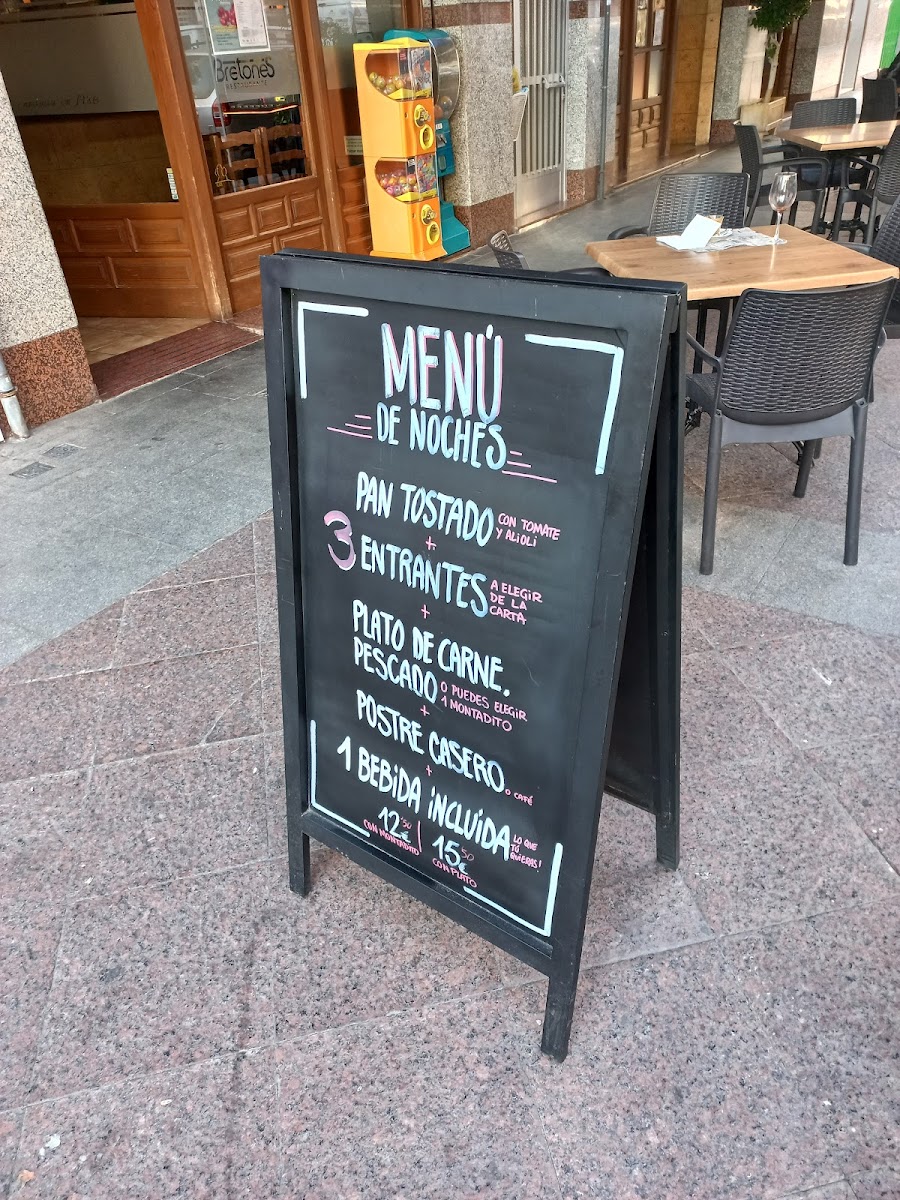 Bretones
MENÚ
DE NOCHES
PAN TOSTADO CON TOMATE
Y ALIOLI
+
3 ENTRANTES A ELEGIR
DE LA
CARTA
+
PLATO DE CARNE.
PESCADO O PUEDES ELEGIR
1 MONTADITO
+
POSTRE CASERO. O CAFÉ
+
1 BEBIDA INCLUIDA LO QUE
TÚ
QUIERAS!
12'50€ | 15'50€
CON MONTADITO CON PLATO